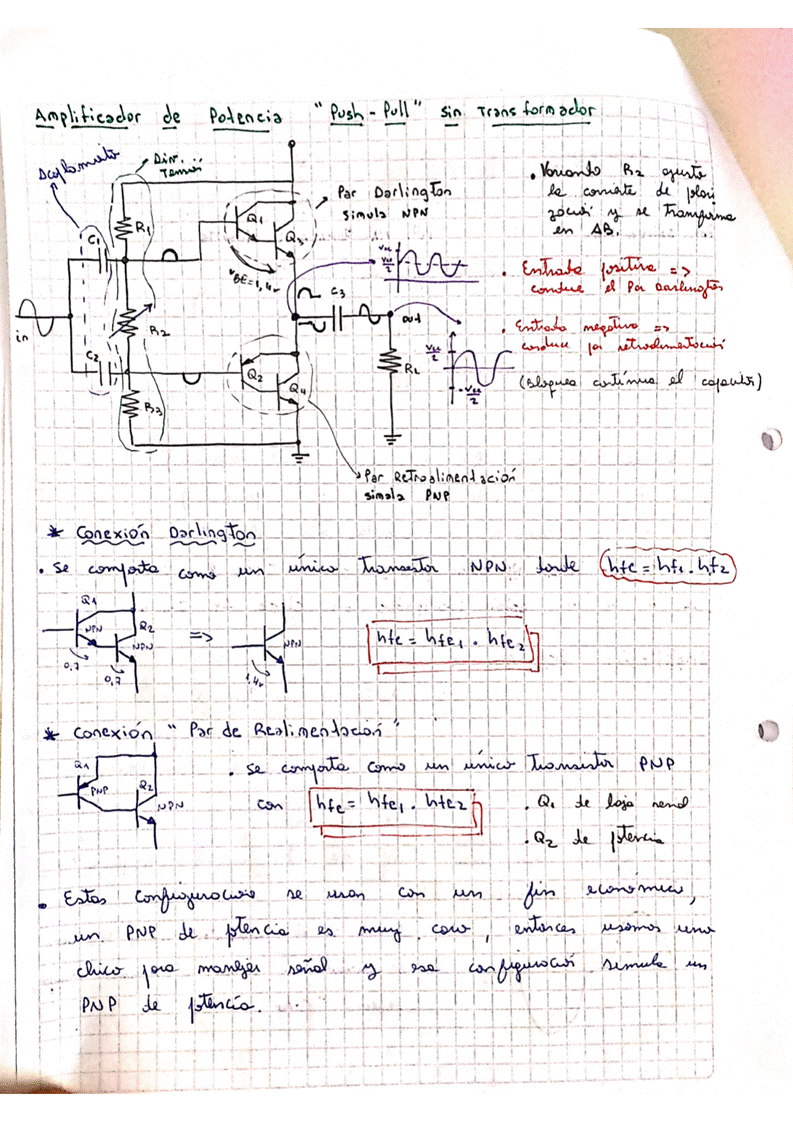 Amplificador de Potencia "Push-Pull" sin Transformador
Acoplamiento
Div.
Tensión
R1
C1
in
R2
C2
R3
Q1
Q3
VBE=1,4v
Par Darlington
simula NPN
C3
out
RL
Vcc
Vcc/2
Vcc/2
-Vcc/2
Q2
Q4
Par Retroalimentación
simula PNP
. Variando R2 ajusto
la corriente de polari
zación y se transforma
en AB.
. Entrada positiva =>
conduce el Par Darlington
. Entrada negativa =>
conduce par retroalimentación
(Bloquea contínua el capacitor)
* Conexión Darlington
. Se comporta como un único transistor NPN donde hfe = hf1 . hf2
Q1
NPN
Q2
NPN
0,7
0,7
=>
NPN
1,4v
hfe = hfe1 . hfe2
* Conexión "Par de Realimentación"
Q1
PNP
Q2
NPN
. Se comporta como un único transistor PNP
con hfe = hfe1 . hfe2
. Q1 de baja señal
. Q2 de potencia
. Estas configuración se usan con un fin económico,
un PNP de potencia es muy caro, entonces usamos uno
chico para manejar señal y esa configuración simula un
PNP de potencia.